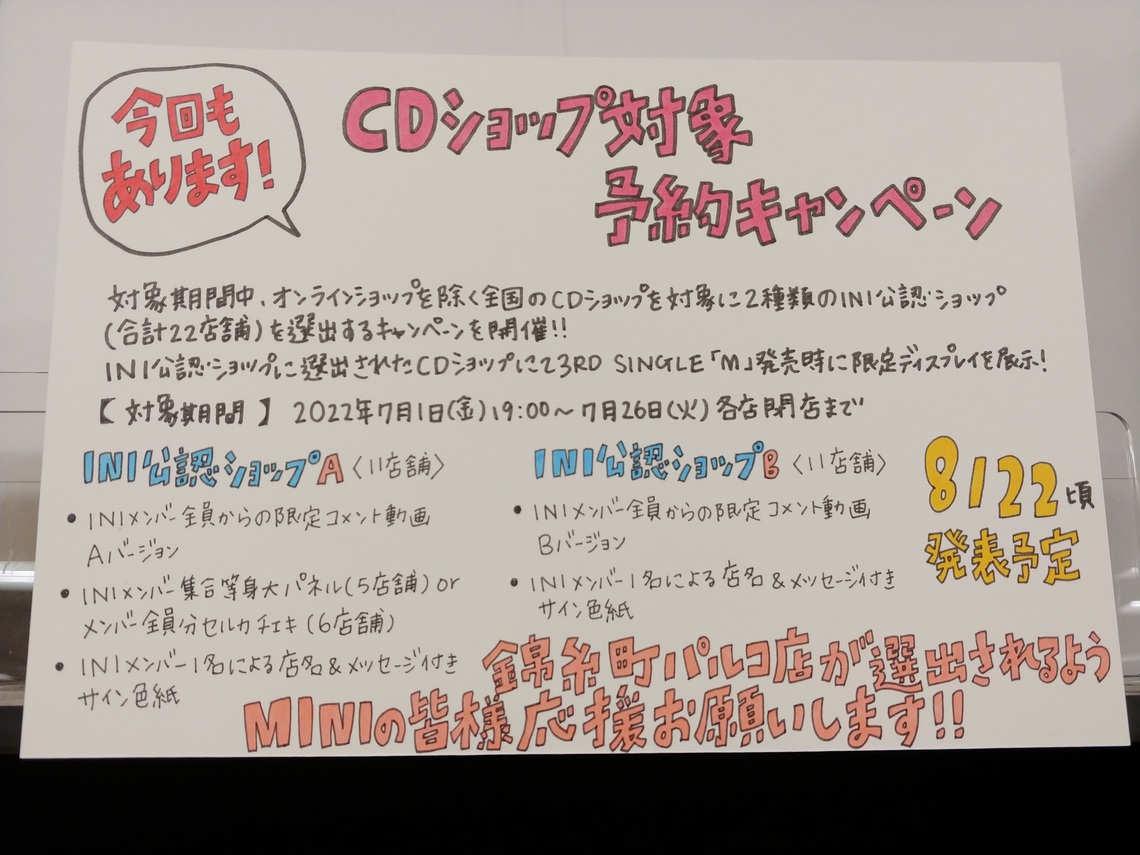 今回も
あります!
CDショップ対象
予約キャンペーン
対象期間中、オンラインショップを除く全国のCDショップを対象に2種類のINI公認ショップ
(合計22店舗)を選出するキャンペーンを開催!!
INI公認ショップに選出されたCDショップにて3RD SINGLE「M」発売時に限定ディスプレイを展示!
【対象期間】 2022年7月1日(金)19:00~7月26日(火)各店閉店まで
INI公認ショップA〈11店舗〉
・INIメンバー全員からの限定コメント動画
Aバージョン
・INIメンバー集合等身大パネル(5店舗)or
メンバー全員分セルカチェキ(6店舗)
・INIメンバー1名による店名&メッセージ付き
サイン色紙
INI公認ショップB〈11店舗〉
・INIメンバー全員からの限定コメント動画
Bバージョン
・INIメンバー1名による店名&メッセージ付き
サイン色紙
8/22頃
発表予定
錦糸町パルコ店が選出されるよう
MINIの皆様応援お願いします!!